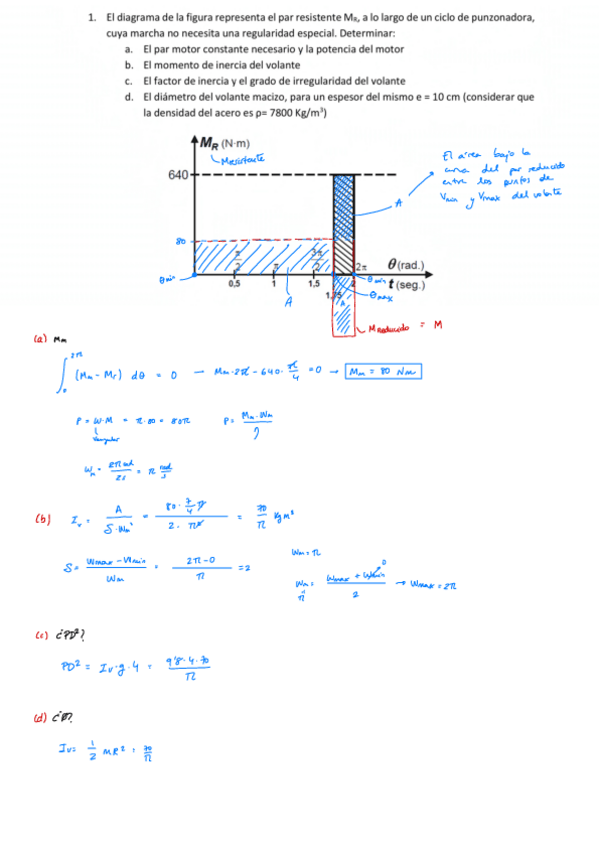 1. El diagrama de la figura representa el par resistente MR, a lo largo de un ciclo de punzonadora,
cuya marcha no necesita una regularidad especial. Determinar:
a. El par motor constante necesario y la potencia del motor
b. El momento de inercia del volante
c. El factor de inercia y el grado de irregularidad del volante
d. El diámetro del volante macizo, para un espesor del mismo e = 10 cm (considerar que
la densidad del acero es ρ= 7800 Kg/m³)
MR (N·m)
Mresistente
El área bajo la
curva del par reducido
entre los puntos de
Vmin y Vmax del volante
640
A
80
π/2 π 3π/2 2π θ (rad.)
θmin
0,5 1 1,5 1,75 2 t (seg.)
A
θmin
θmax
A
Mreducido = M
(a) Mm
∫₀^2π (Mm - Mr) dθ = 0 → Mm·2π - 640·π/4 = 0 → Mm = 80 Nm
P = W·M = π·80 = 80π P = Mm·Wm/?
Wm = 2π rad/2s = π rad/s
(b) Iv = A/(δ·Wm²) = (80·7/4 π)/(2·π²) = 70/π Kg m²
δ = (Wmax - Wmin)/Wm = (2π-0)/π = 2
Wm = π
Wm = (Wmax + Wmin)/2 → Wmax = 2π
π
0
(c) ¿PD²?
PD² = Iv·g·4 = 9'8·4·70/π
(d) ¿Ø?
Iv = 1/2 MR² = 70/π